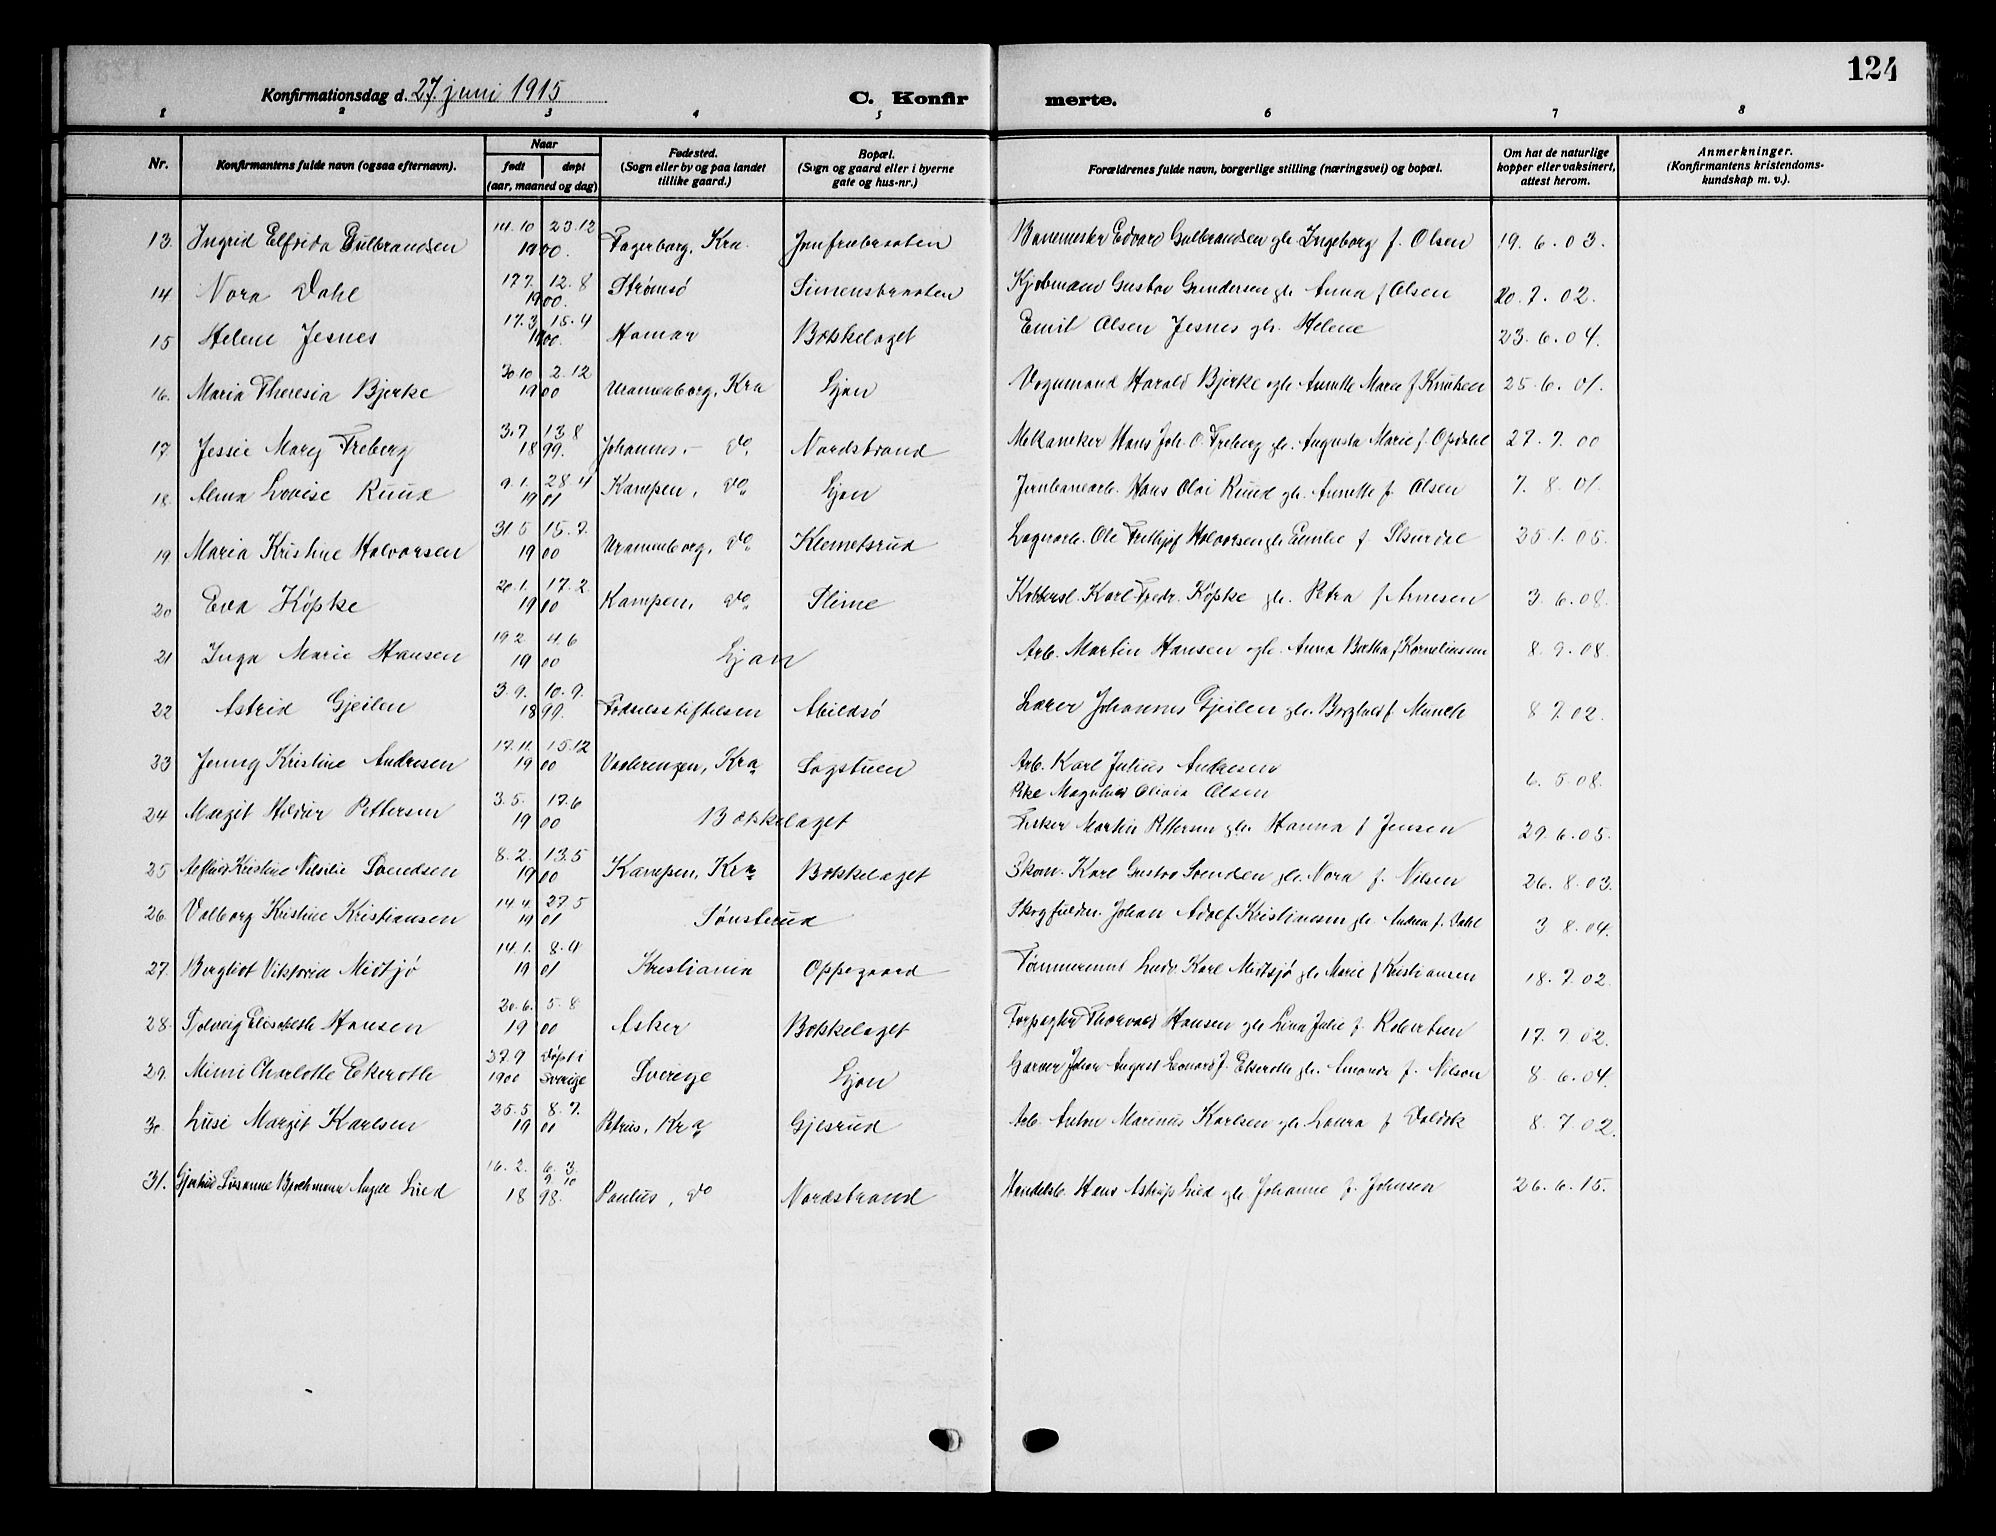 124
Konfirmationsdag d. 27. juni 1915 C. Konfir merte.
1 2 3 4 5 6 7 8
Nr. Konfirmantens fulde navn (ogsaa efternavn). Naar født døpt (aar, maaned og dag) Fødested. (Sogn eller by og paa landet tillike gaard.) Bopæl. (Sogn og gaard eller i byerne gate og hus-nr.) Forældrenes fulde navn, borgerlige stilling (næringsvei) og bopæl. Om hat de naturlige kopper eller vaksinert, attest herom. Anmerkninger. (Konfirmantens kristendoms-kundskap m. v.).
13. Ingrid Elfrida Gulbrandsen 14.10 23.12 1900. Fagerborg, Kra. Jomfrubraaten Banemester Edvard Gulbrandsen gh. Ingeborg f. Olsen 19.6.03.
14 Nora Dahl 17.7. 12.8 1900. Strømsø Simensbraaten Kjøbmand Gustav Gundersen gh. Anna f Olsen 20.7.02.
15 Helene Jesnes 17.3. 15.4 1900. Hamar Bækkelaget Emil Olsen Jesnes gh. Helene 23.6.04.
16. Maria Theresia Bjerke 30.10 2.12 1900 Uranienborg, Kra Ljan Vognmand Harald Bjerke gh. Annette Marie f Knutsen 25.6.01.
17 Jessie Mary Freberg 3.7 13.8 1899. Johannes. - do. Nordstrand Mekaniker Hans Joh. O. Freberg gh. Augusta Marie f. Opdahl 27.7.00
18. Alma Lovise Ruud 9.1. 28.4 1901 Kampen, do. Ljan Jernbanearb. Hans Olai Ruud gh. Annette f. Olsen 7.8.01.
19. Maria Kristine Halvorsen 31.5 15.7. 1900 Uranienborg, do. Klemetsrud Lagerarb. Ole Frithjof Halvorsen gh. Emilie f Skurdal 25.1.05.
20 Eva Köpke 20.1. 17.2. 1900 Kampen, do. Slime Kobbersl. Karl Fredr. Köpke gh. Petra f Arnesen 3.6.08.
21 Inga Marie Hansen 19.2 4.6 1900 Ljan Arb. Martin Hansen gh. Anna Bertha f Korneliussen 8.9.08.
22 Astrid Gjeilen 3.9. 10.9. 1899. Fødselsstiftelsen Abildsø Lærer Johannes Gjeilen gh. Borghild f. Munch 8.7.02.
23 Jenny Kristine Andresen 17.11. 15.12 1900 Vaalerengen, Kra Sagstuen Arb. Karl Julius Andresen
Pike Magnhild Olivia Olsen 6.5.08.
24 Margit Hildur Pettersen 3.5. 17.6 1900 Bækkelaget Fisker Martin Pettersen gh. Hanna f Jensen 29.6.05.
25 Kristine Nilsine Svendsen 8.2. 13.5 1900 Kampen, Kra Bækkelaget Skom. Karl Gustav Svendsen gh. Nora f. Nilsen 26.8.03.
26. Valborg Kristine Kristiansen 14.4. 27.5 1901 Sønsterud Skogfuldm. Johan Adolf Kristiansen gh. Andrea f. Dahl 3.8.04.
27. Bergliot Viktoria Midtsjø 14.1. 8.4 1901 Kristiania Oppegaard Tømmermand Ludv. Karl Midtsjø gh. Marie f Kristiansen 18.7.02.
28. Solveig Elisabeth Hansen 20.6. 5.8 1900 Asker Bækkelaget Thorvald Hansen gh. Lina Julie f. Robertsen 17.7.02.
29. Mimi Charlotte Ekeroth 27.9 1900 Døpt i Sverige Sverige Ljan Garver Johan August Leonard J. Ekeroth gh. Amanda f. Nilson 8.6.04.
30. Lusi Margit Karlsen 25.5 8.7. 1901 Petrus, Kra Gjersrud Arb. Anton Marinus Karlsen gh. Laura f 8.7.02.
31. Gjertrud Susanne Bjochmann Lied 16.2. 6.3. 1898. Paulus, do Nordstrand Handelsb. Hans Astrup Lied gh. Johanne f. Johnsen 26.6.15.